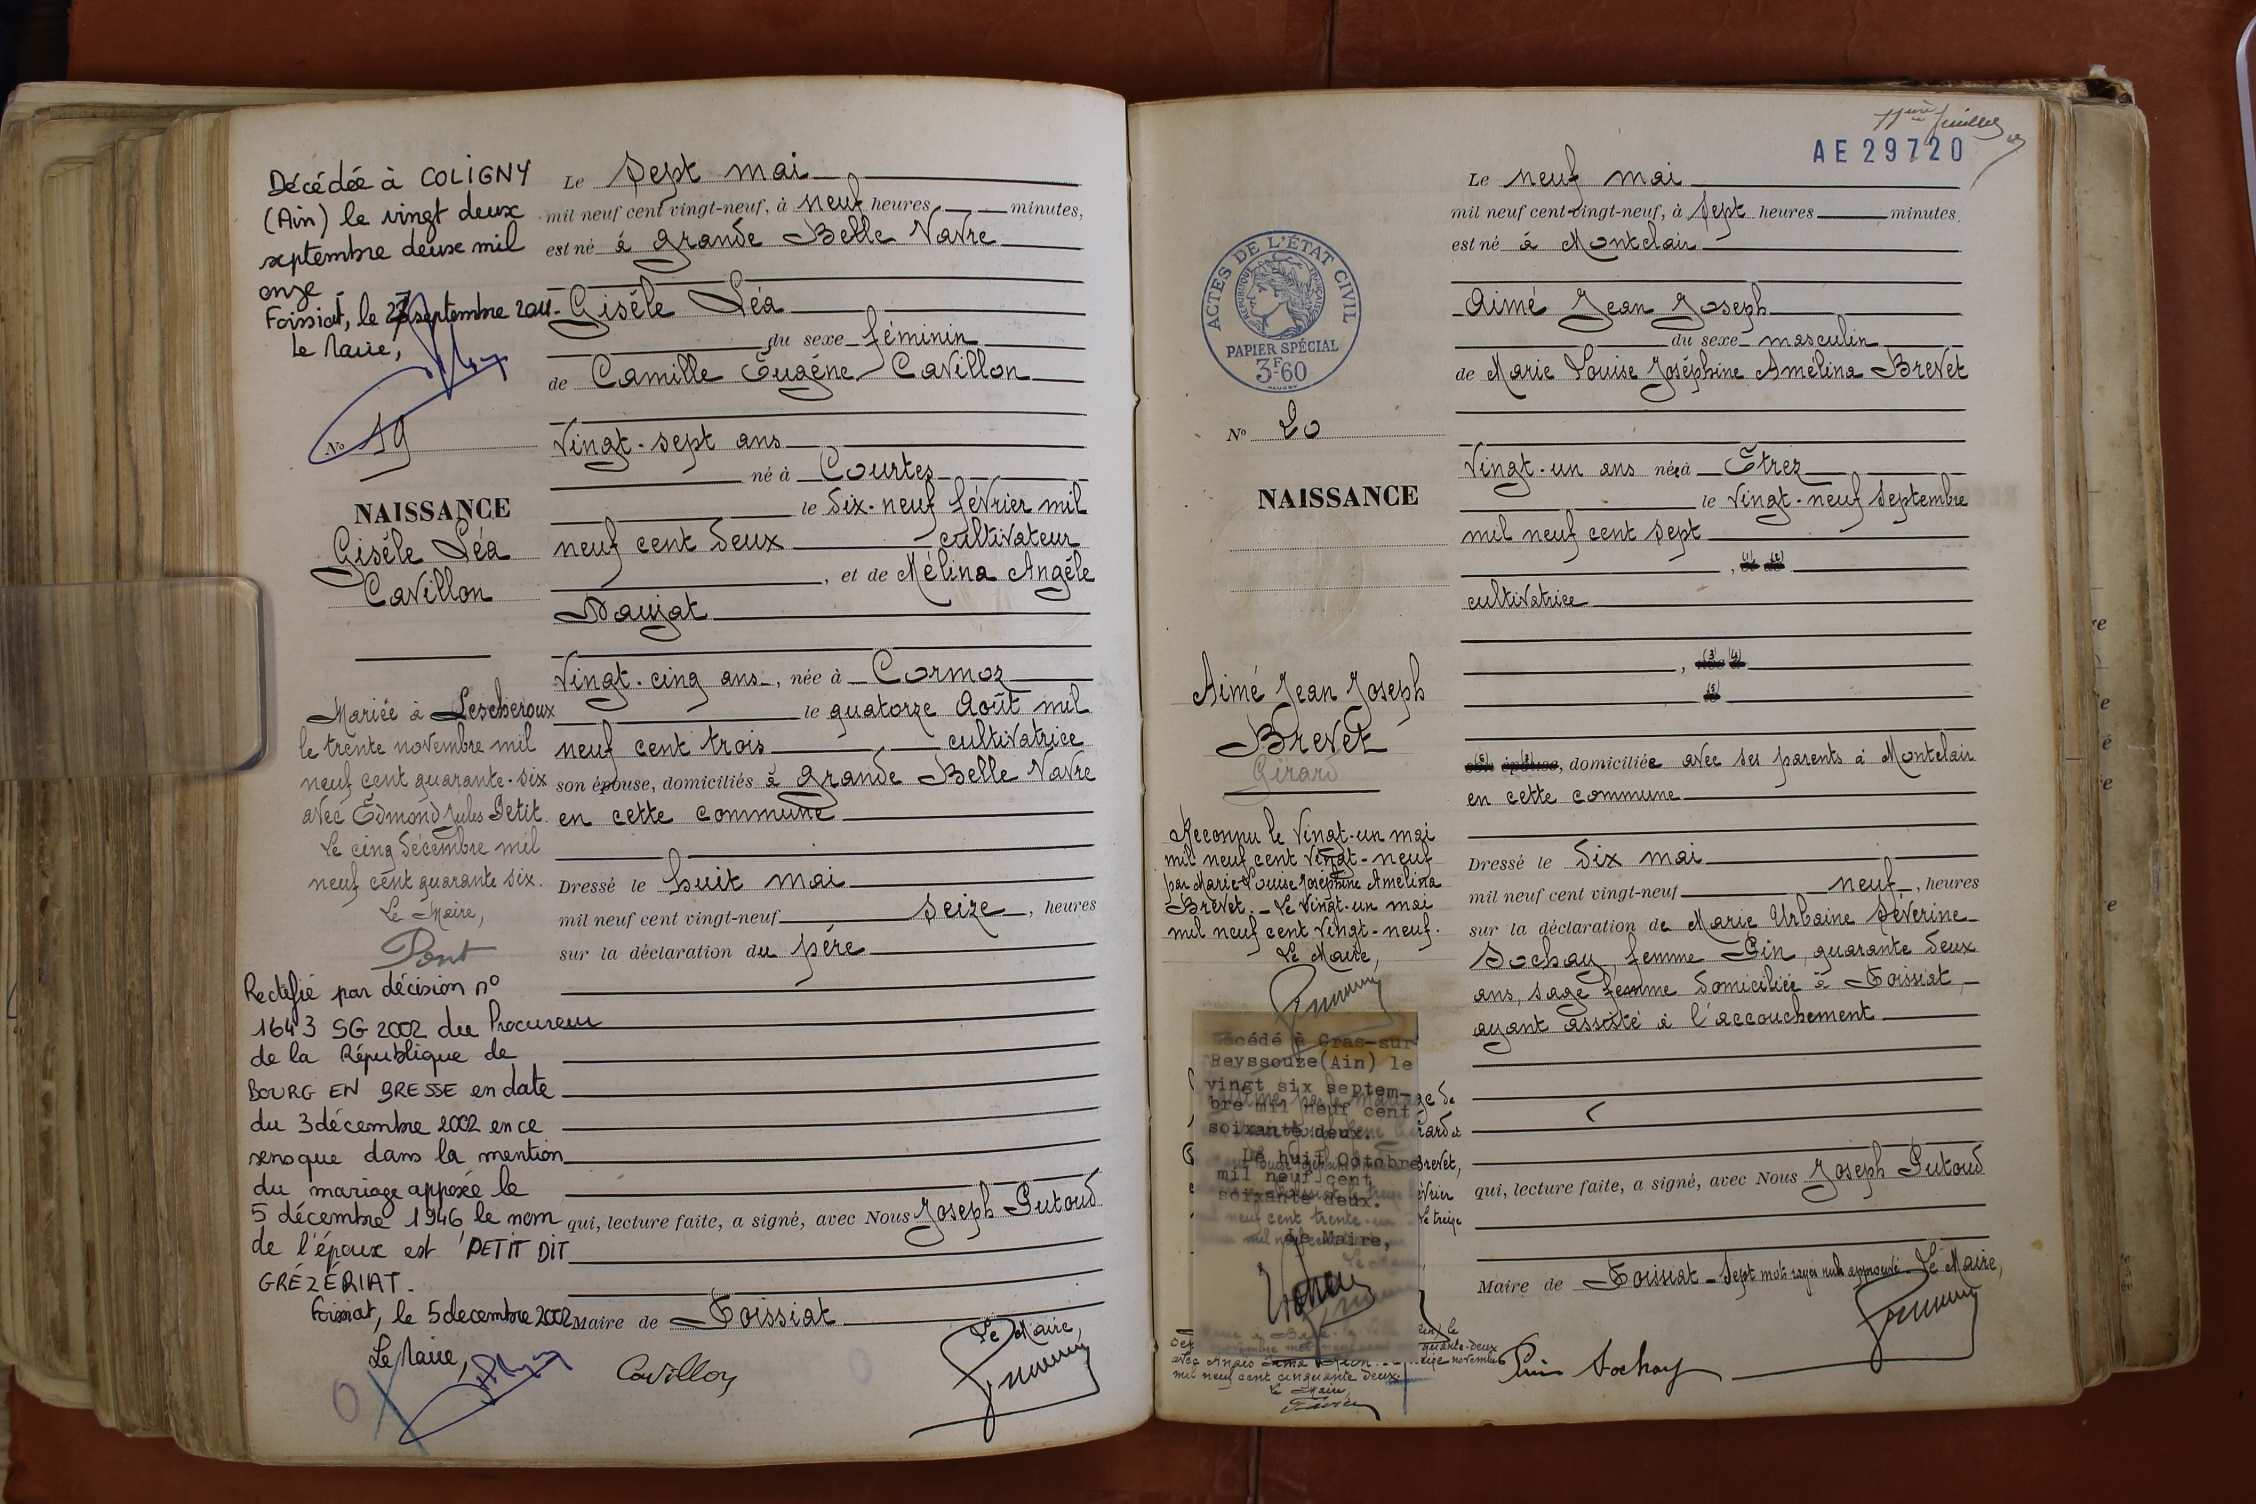 Décédée à COLIGNY
(Ain) le vingt deux
septembre deux mil
onze
Foissiat, le 27 septembre 2011.
Le Maire,
No 19
NAISSANCE
Gisèle Léa
Cavillon
Mariée à Lescheroux
le trente novembre mil
neuf cent quarante-six
avec Edmond Jules Petit.
Le cinq décembre mil
neuf cent quarante six.
Le Maire,
Pont
Rectifié par décision no
1643 SG 2002 du Procureur
de la République de
BOURG EN BRESSE en date
du 3 décembre 2002 en ce
sens que dans la mention
du mariage apposée le
5 décembre 1946 le nom
de l'époux est PETIT DIT
GRÉZÉRIAT.
Foissiat, le 5 decembre 2002
Le Maire,
Le sept mai
mil neuf cent vingt-neuf, à neuf heures minutes,
est né à Grande Belle Vavre
Gisèle Léa
du sexe féminin
de Camille Eugène Cavillon
Vingt-sept ans
né à Courtes
le dix-neuf février mil
neuf cent deux cultivateur
, et de Mélina Angèle
Naujat
Vingt-cinq ans, née à Cormoz
le quatorze Août mil
neuf cent trois cultivatrice
son épouse, domiciliés à Grande Belle Vavre
en cette commune
Dressé le huit mai
mil neuf cent vingt-neuf seize, heures
sur la déclaration du père
qui, lecture faite, a signé, avec Nous Joseph Putoud
Maire de Foissiat
Le Maire,
Cavillon
11ème feuillet
AE 29720
ACTES DE L'ÉTAT CIVIL
RÉPUBLIQUE FRANÇAISE
PAPIER SPÉCIAL
3F60
No 20
NAISSANCE
Aimé Jean Joseph
Brevet
Girard
Reconnu le Vingt-un mai
mil neuf cent Vingt-neuf
par Marie Louise Joséphine Amélina
Brevet. - Le Vingt-un mai
mil neuf cent Vingt-neuf.
Le Maire,
Décédé à Cras-sur
Reyssouze(Ain) le
vingt six septem-
bre mil neuf cent
soixante deux.
Le huit Octobre
mil neuf cent
soixante deux.
Le Maire,
quante-deux
novembre
mil neuf cent cinquante deux.
Le Maire
Le neuf mai
mil neuf cent vingt-neuf, à sept heures minutes,
est né à Montclair
Aimé Jean Joseph
du sexe masculin
de Marie Louise Joséphine Amélina Brevet
Vingt-un ans née à Étrez
le vingt-neuf septembre
mil neuf cent sept
, et de
cultivatrice
son épouse, domiciliée avec ses parents à Montclair
en cette commune
Dressé le dix mai
mil neuf cent vingt-neuf neuf, heures
sur la déclaration de Marie Urbaine Séverine
Sochay, femme Pin, quarante deux
ans, sage femme domiciliée à Foissiat,
ayant assisté à l'accouchement
qui, lecture faite, a signé, avec Nous Joseph Putoud
Maire de Foissiat - Sept mots rayés nuls approuvé. Le Maire,
Pin Sochay